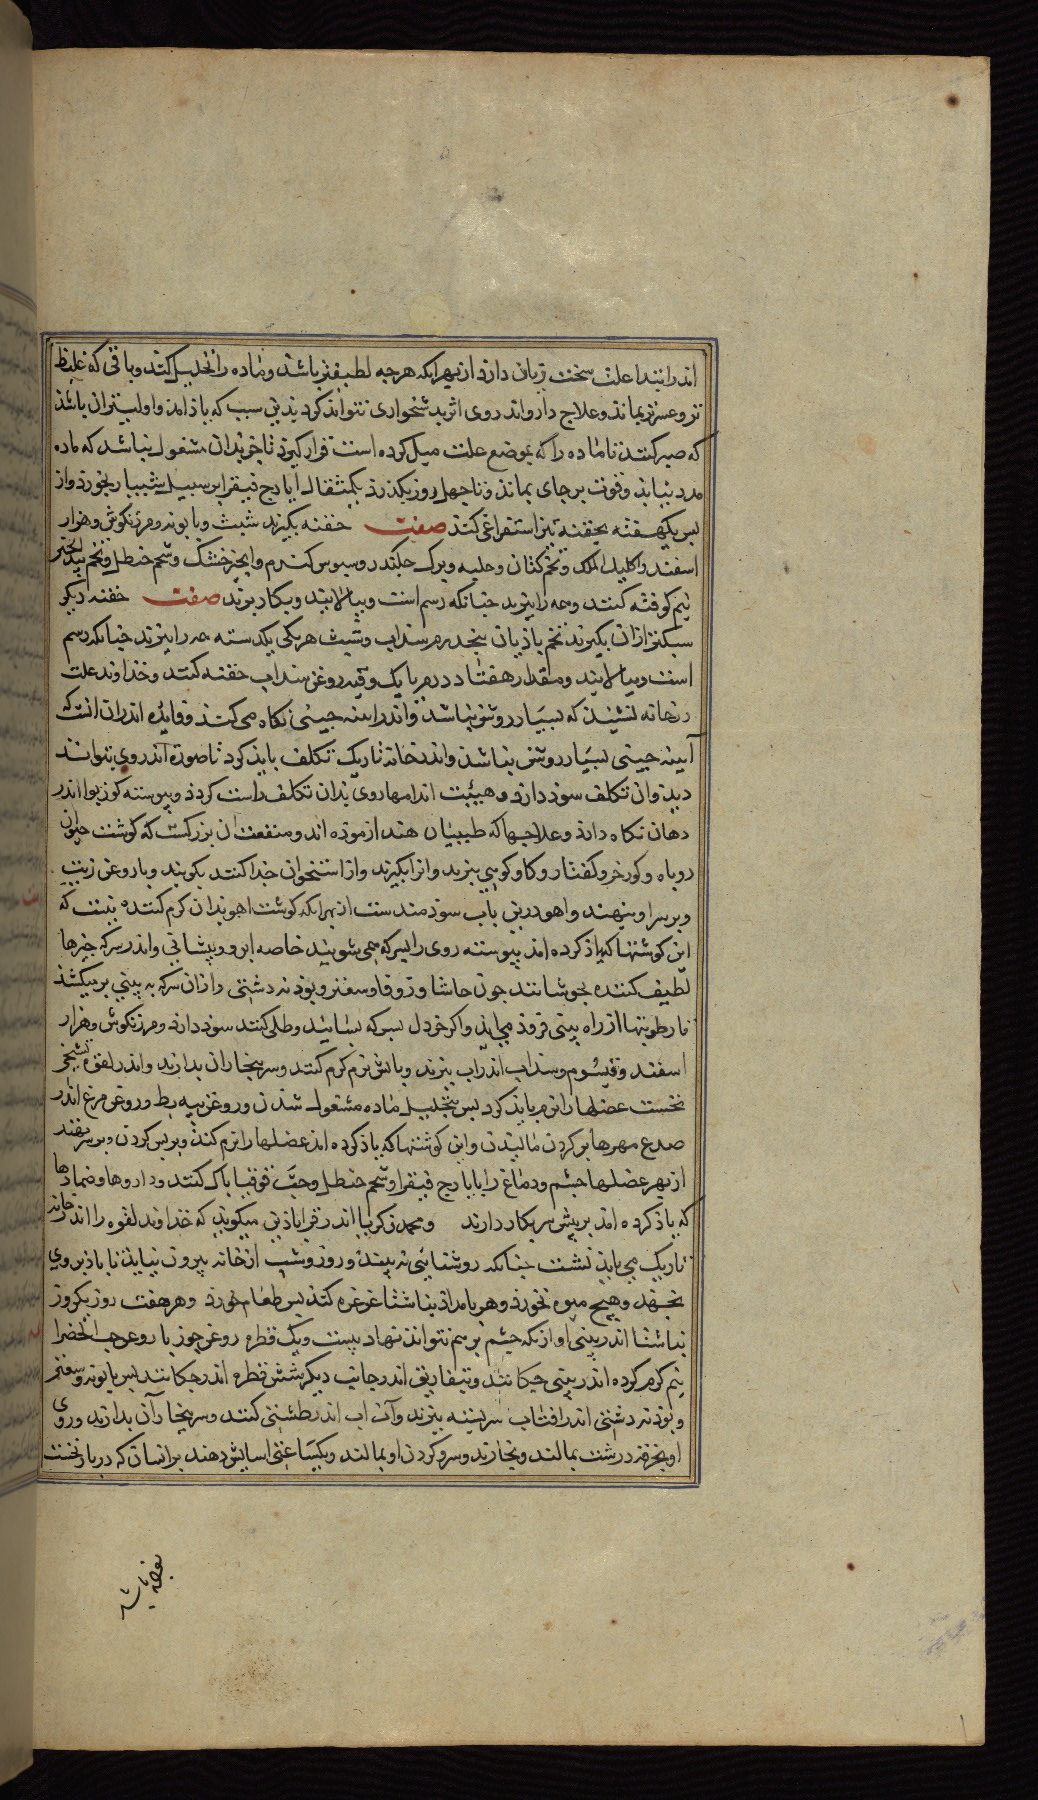 اندر ابتداء علت سخت زیان دارد از بهر آنکه هرچه لطیفتر باشد و ماده را تحلیل کند و باقی که غلیظ
تر و عسرتر بماند و علاج دارو اندر وی اثر بدشخواری نتواند کرد بدین سبب که یاذ امد و اولیتر ان باشد
که صبر کنند تا ماده را که بموضع علت میل کرده است قرار کیرد تا خریدان مشغول نباشد که ماده
مدد نیابد و قوت بر جای بماند و تا چهل روز بکذرد یکمثقال ایارج فیقرا بر سبیل شبیار بخورد و از
بس یکهفته بحقنه تیز استفراغ کند صفت حقنه بکیرند شبث و بابونه و مرزنکوش و هزار
اسفند و اکلیل الملک و تخم کتان و حلبه و برک جکندر و سبوس کندم و انجیر خشک و شحم حنظل و تخم بید انجیر
نیم کوفته کنند و همه را بپزند جنانکه رسم است و ببالایند و بکار برند صفت حقنه دیکر
سبکتر ازان بکیرند تخم باذیان پنجدرم سداب و شبث هر یکی یکدسته همه را بپزند جنانکه رسم
است و ببالایند و مقدار هفتاد درم با یک وقیه روغن سداب حقنه کنند و خداوند علت
در خانه نشیند که بسیار روشن نباشد و اندر آینه جینی نکاه می کند و فایده اندر ان انست که
آیینه جینی بسیار روشن نباشد و اندر خانه تاریک تکلف باید کرد تا صورة اندر وی بتواند
دید و ان تکلف سود دارد و هیئت اندامهاء روی بدان تکلف راست کردد و پیوسته کوز بوا اندر
دهان نکاه دارد و علاجها که طبیبان هند ازموده اند و منفعت ان بزرکست که کوشت حیوان
روباه و کورخر و کفتار و کاو کوهی بپزند و انرا بکیرند و از استخوان جدا کنند بکوبند و با روغن زیت
و بر سر او بنهند و اهو درین باب سودمند ست از بهر آنکه کوشت اهو بدان کرم کننده نیست که
این کوشتها که یاذ کرده امد پیوسته روی را بسرکه می شویند خاصه ابرو و پیشانی و اندر سرکه جیزها
لطیف کننده بجوشانند جون حاشا و زوفا و سعتر و بودنه دشتی و ازان سرکه به بینی بر میکشد
تا رطوبتها از راه بینی فروذ می آید و اکر خردل بسرکه بسایند و طلی کنند سود دارد و مرزنکوش و هزار
اسفند و قیسوم و سداب اندر آب بپزند و بآتش نرم کرم کنند و سر ببخار ان بدارند و اندر لقوه تشنجی
نخست عضلها را نرم باید کرد بس بتحلیل ماده مشغول شدن و روغن پیه بط و روغن مرغ اندر
صدغ مهرها بر کردن مالیدن و این کوشتها که یاذ کرده امد عضلها را نرم کند و بر بس کردن و بر سر نهند
از بهر عضلها جشم و دماغ را بایارج فیقرا و شحم حنظل و حب قوقیا باک کنند و داروها و ضمادها
که یاذ کرده امد بر پیش سر بکار دارند و محمد زکریا اندر قراباذین میکوید که خداوند لقوه را اندر خانه
تاریک می باید نشست جنانکه روشنایی نه بیند و روز و شب از خانه بیرون نیاید تا باذ بر وی
نجهد و هیج میوه نخورد و هر بامداد بناشتا غرغره کند بس طعام خورد و هر هفت روز یکروز
بناشتا اندر بینی او ازنکه جشم بر هم نتواند نهاد بیست و یک قطره روغن جوز یا روغن حب الخضرا
نیم کرم کرده اندر بینی جکانند و بتفاریق اندر جانب دیکر شش قطره اندر جکانند بس بابونه و سعتر
و بودنه دشتی اندر افتابه سربسته بپزند و آن اب اندر طشتی کنند و سر ببخار آن بدارند و روی
او بخرقه درشت بمالند و بخارند و سر و کردن او بمالند و یکساعتی اسایش دهند بر انسان که در بار نخست